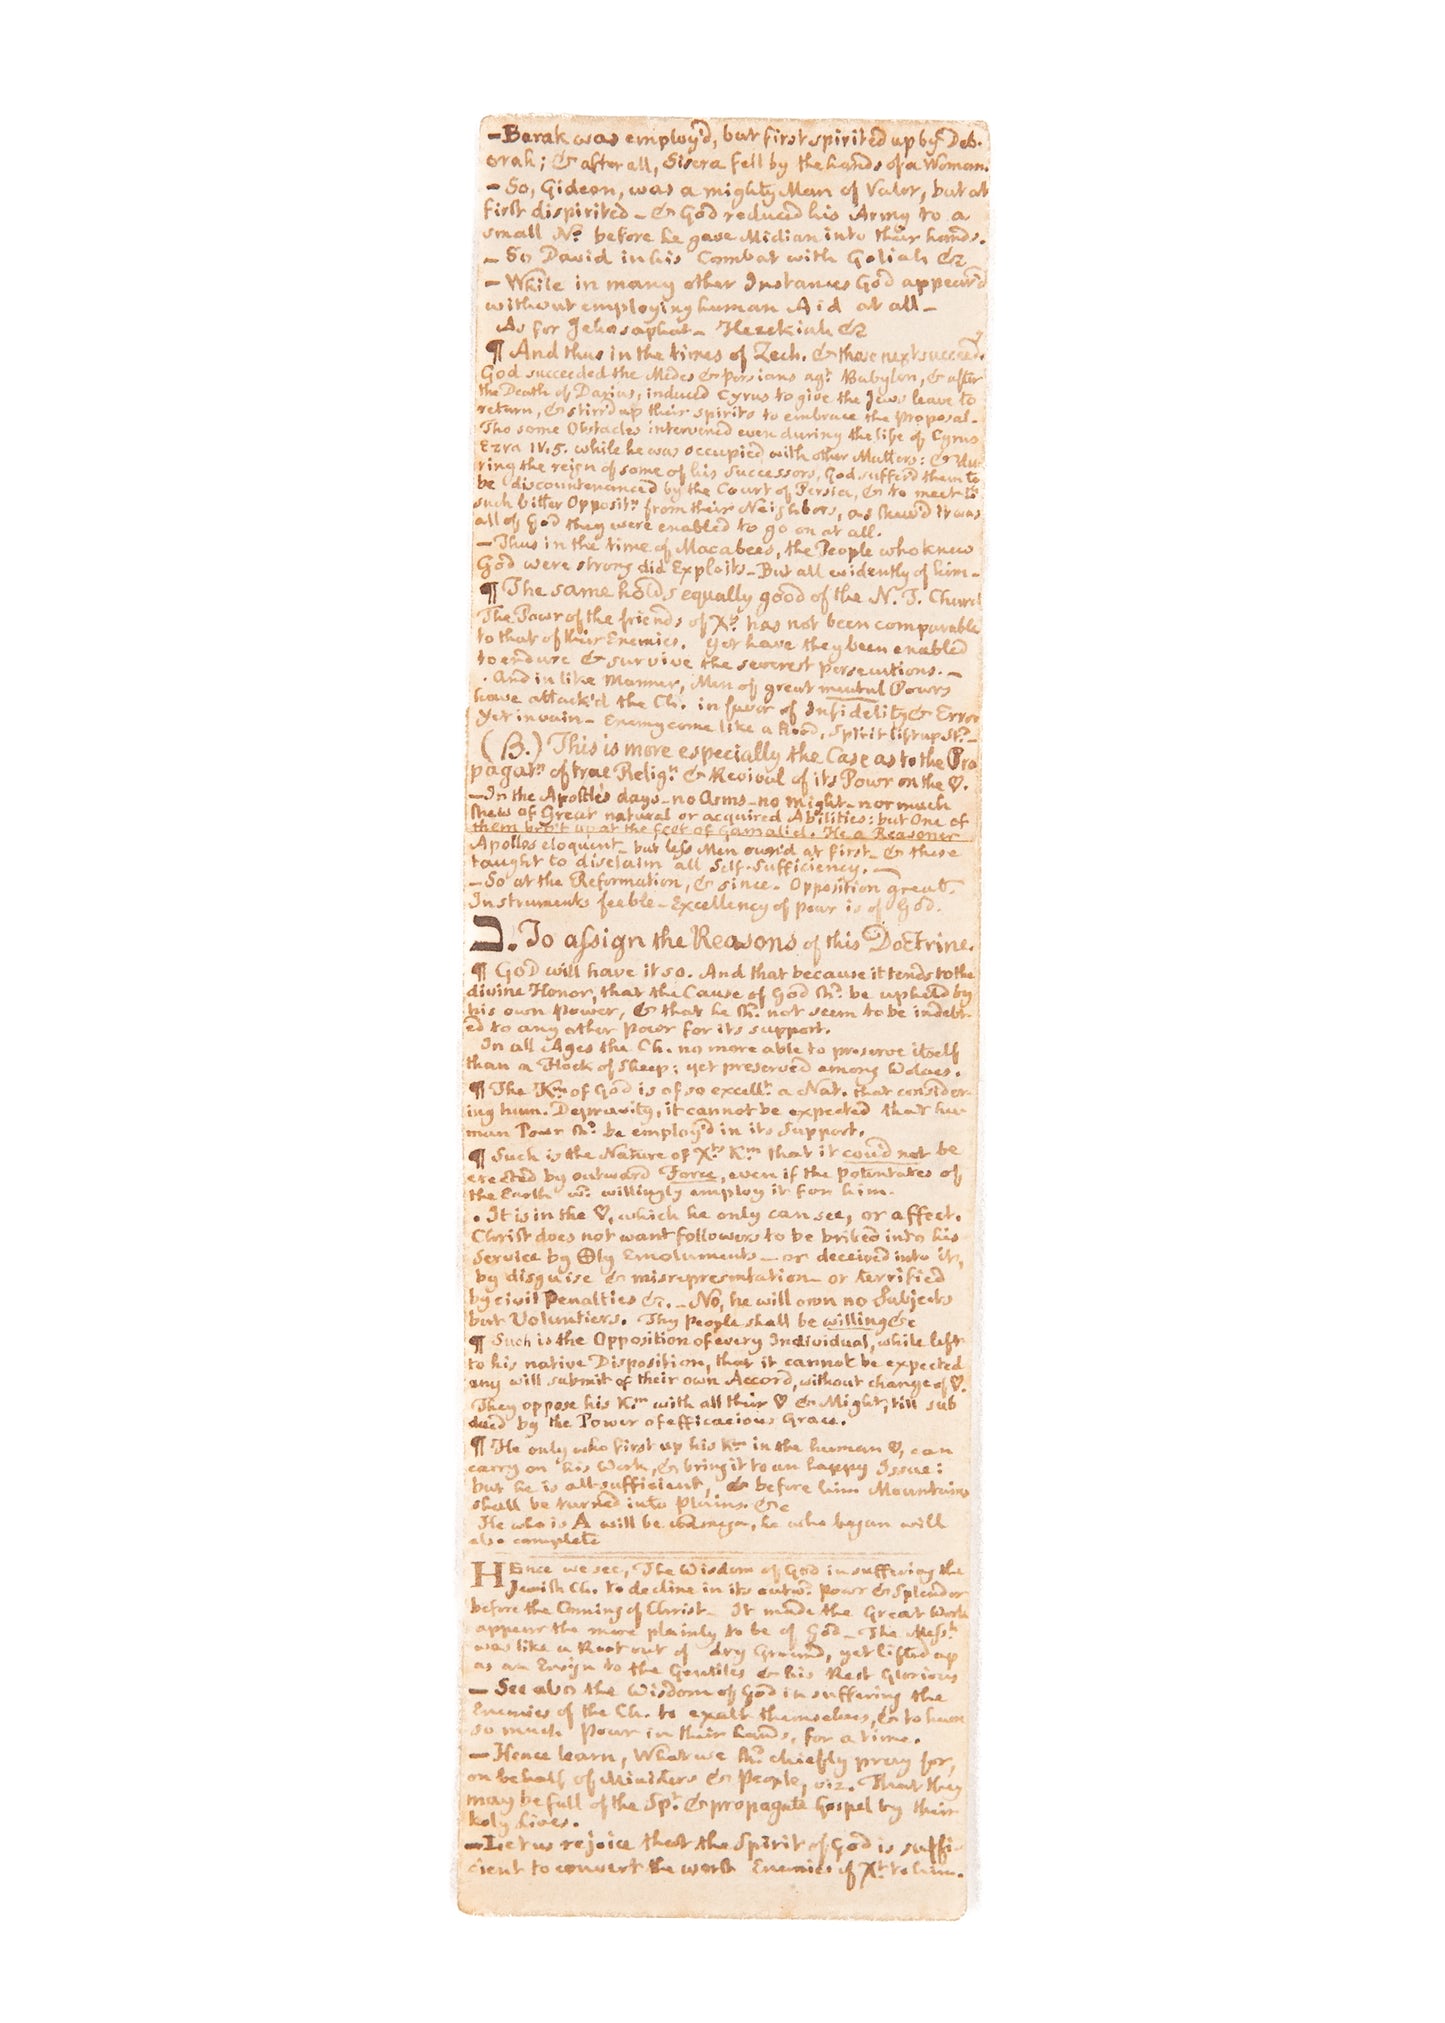 —Barak was employ'd, but first spirited up by Deb-
orah; & after all, Sisera fell by the hands of a Woman.
— So, Gideon, was a mighty Man of Valor, but at
first dispirited — & God reduced his Army to a
small No. before he gave Midian into their hands.
— So David in his Combat with Goliah &c
— While in many other Instances God appear'd
without employing human Aid at all —
As for Jehosaphat — Hezekiah &c
¶ And thus in the times of Zech. & those next succeed.g
God succeeded the Medes & Persians agt. Babylon, & after
the Death of Darius, induced Cyrus to give the Jews leave to
return, & stirr'd up their spirits to embrace the Proposal.
Tho some Obstacles intervened even during the life of Cyrus
Ezra IV.5. while he was occupied with other Matters: & du-
ring the reign of some of his Successors, God suffer'd them to
be discountenanced by the Court of Persia, & to meet th
such bitter Oppositn. from their Neighbors, as shew'd it was
all of God they were enabled to go on at all.
— Thus in the time of Macabees, the People who knew
God were strong did Exploits — But all evidently of him —
¶ The same holds equally good of the N. T. Church
The Powr of the friends of Xt. has not been comparable
to that of their Enemies. Yet have they been enabled
to endure & survive the severest persecutions. —
. And in like Manner, Men of great mental Powrs
have attack'd the Ch. in favor of Infidelity & Error
Yet in vain — Enemy come like a flood, Spirit lift up St.d —
(B.) This is more especially the Case as to the Pro
pagatn. of true Relign. & Revival of its Powr on the ♡.
—In the Apostles days — no Arms — no might — nor much
shew of Great natural or acquired Abilities: but One of
them bro't up at the feet of Gamaliel. He a Reasoner
Apollos eloquent — but less Men own'd at first — & these
taught to disclaim all Self-Sufficiency. —
— So at the Reformation, & since. Opposition great.
Instruments feeble — Excellency of powr is of God.
ב. To assign the Reasons of this Doctrine.
¶ God will have it so. And that because it tends to the
divine Honor, that the Cause of God shd. be upheld by
his own Power, & that he shd. not seem to be indebt-
ed to any other Powr for its support.
In all Ages the Ch. no more able to preserve itself
than a Flock of Sheep; yet preserved among Wolves.
¶ The Km of God is of so excellt. a Nat. that consider-
ing hum. Depravity, it cannot be expected that hu-
man Powr shd. be employ'd in its Support.
¶ Such is the Nature of Xts Km that it could not be
erected by outward Force, even if the Potentates of
the Earth wd. willingly employ it for him.
. It is in the ♡, which he only can see, or affect.
Christ does not want followers to be bribed into his
Service by ⊕ly Emoluments — or deceived into it,
by disguise & misrepresentation — or terrified
by civil Penalties &c. — No, he will own no Subjects
but Voluntiers. Thy People shall be willing &c
¶ Such is the Opposition of every Individual, while left
to his native Disposition, that it cannot be expected
any will submit of their own Accord, without change of ♡.
They oppose his Km with all their ♡ & Might, till sub
dued by the Power of efficacious Grace.
¶ He only who first up his Km in the human ♡, can
carry on his Work, & bring it to an happy Issue:
but he is all-sufficient, & before him Mountains
shall be turned into Plains. &c
He who is A will be Omega, he who began will
also complete
HEnce we see, The Wisdom of God in suffering the
Jewish Ch. to decline in its outwd. Powr & Splendor
before the Coming of Christ — It made the Great Work
appear the more plainly to be of God — The Messh.
was like a Root out of dry Ground, yet lifted up
as an Ensign to the Gentiles & his Rest Glorious
— See also the Wisdom of God in suffering the
Enemies of the Ch. to exalt themselves, & to have
so much Powr in their hands, for a time.
— Hence learn, What we shd. chiefly pray for,
on behalf of Ministers & People, viz. That they
may be full of the Spt. & propagate Gospel by their
holy Lives.
— Let us rejoice that the Spirit of God is suffi-
cient to convert the worst Enemies of Xt. to him.